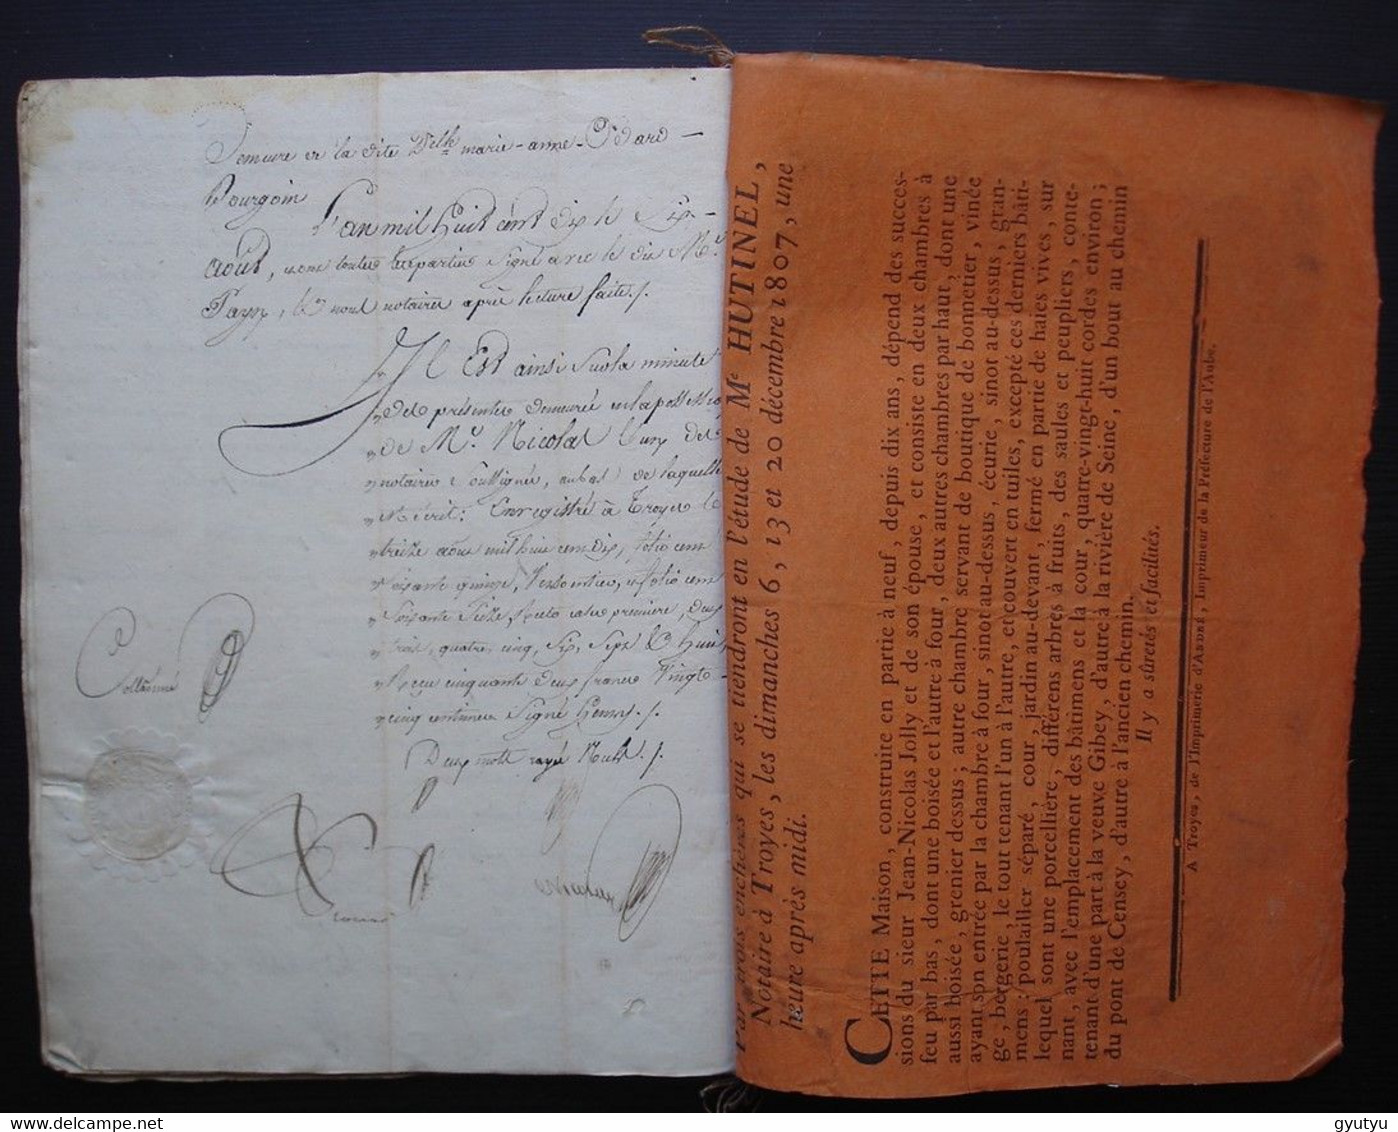 Demeure et la dite Delle marie-anne-Odard -
Bourgoin
L'an mil huit cent dix le Six -
août, nous toutes les parties Signé avec le dit Mr.
Payn, Et nous notaires après lecture faite./.
Il Est ainsi Sur la minute
des présentes demeurée en la possession
de Mr. Nicolas l'un des
notaires Soussignés, au bas de laquelle
Est écrit: Enregistré à Troyes le
treize août mil huit cent dix, folio cent
Soixante quinze, Verso entier, et folio cent
Soixante Seize, Recto cases première, deux
trois, quatre, cinq, Six, Sept Et huit,
Reçu cinquante deux francs Vingt -
cinq centimes Signé
Collationné
Deux mots rayés Nuls./.
Nicolas
Par trois enchères qui se tiendront en l'étude de Me HUTINEL,
Notaire à Troyes, les dimanches 6, 13 et 20 décembre 1807, une
heure après midi.
CETTE Maison, construite en partie à neuf, depuis dix ans, dépend des succes-
sions du sieur Jean-Nicolas Jolly et de son épouse, et consiste en deux chambres à
feu par bas, dont une boisée et l'autre à four, deux autres chambres par haut, dont une
aussi boisée, grenier dessus; autre chambre servant de boutique de bonnetier, vinée
ayant son entrée par la chambre à four, sinot au-dessus, écurie, sinot au-dessus, gran-
ge, bergerie, le tout tenant l'un à l'autre, et couvert en tuiles, excepté ces derniers bâti-
mens: poulailler séparé, cour, jardin au-devant, fermé en partie de haies vives, sur
lequel sont une porcellière, différens arbres à fruits, des saules et peupliers, conte-
nant, avec l'emplacement des bâtimens et la cour, quatre-vingt-huit cordes environ;
tenant d'une part à la veuve Gibey, d'autre à la rivière de Seine, d'un bout au chemin
du pont de Censey, d'autre à l'ancien chemin.
Il y a sûretés et facilités.
A Troyes, de l'Imprimerie d'ANDRÉ, Imprimeur de la Préfecture de l'Aube.
delcampe.net
gyutyu